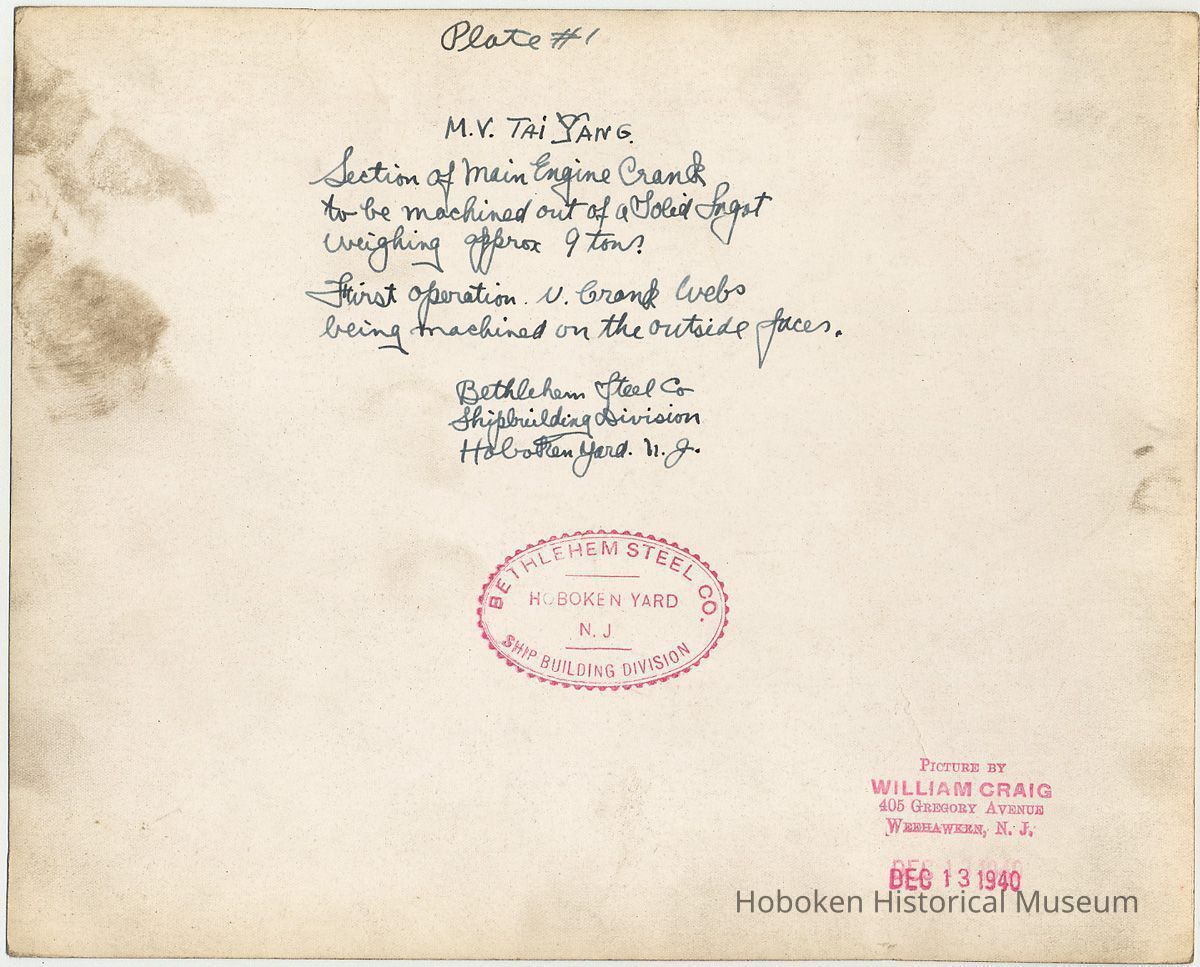 Plate #1
M.V. TAI YANG.
Section of Main Engine Crank
to be machined out of a Solid Ingot
weighing approx 9 tons
First operation. V. Crank Webs
being machined on the outside faces.
Bethlehem Steel Co
Shipbuilding Division
Hoboken Yard. N.J.
BETHLEHEM STEEL CO.
HOBOKEN YARD
N. J
SHIP BUILDING DIVISION
PICTURE BY
WILLIAM CRAIG
405 GREGORY AVENUE
WEEHAWKEN, N. J.
DEC 13 1940
Hoboken Historical Museum